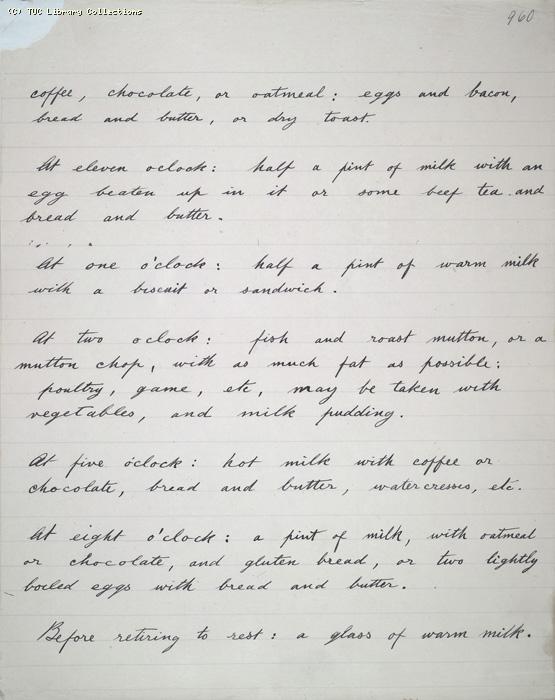 (C) TUC Library Collections
960
coffee, chocolate, or oatmeal: eggs and bacon,
bread and butter, or dry toast.
At eleven oclock: half a pint of milk with an
egg beaten up in it or some beef tea and
bread and butter.
At one o'clock: half a pint of warm milk
with a biscuit or sandwich.
At two oclock: fish and roast mutton, or a
mutton chop, with as much fat as possible:
poultry, game, etc, may be taken with
vegetables, and milk pudding.
At five o'clock: hot milk with coffee or
chocolate, bread and butter, watercresses, etc.
At eight o'clock: a pint of milk, with oatmeal
or chocolate, and gluten bread, or two lightly
boiled eggs with bread and butter.
Before retiring to rest: a glass of warm milk.